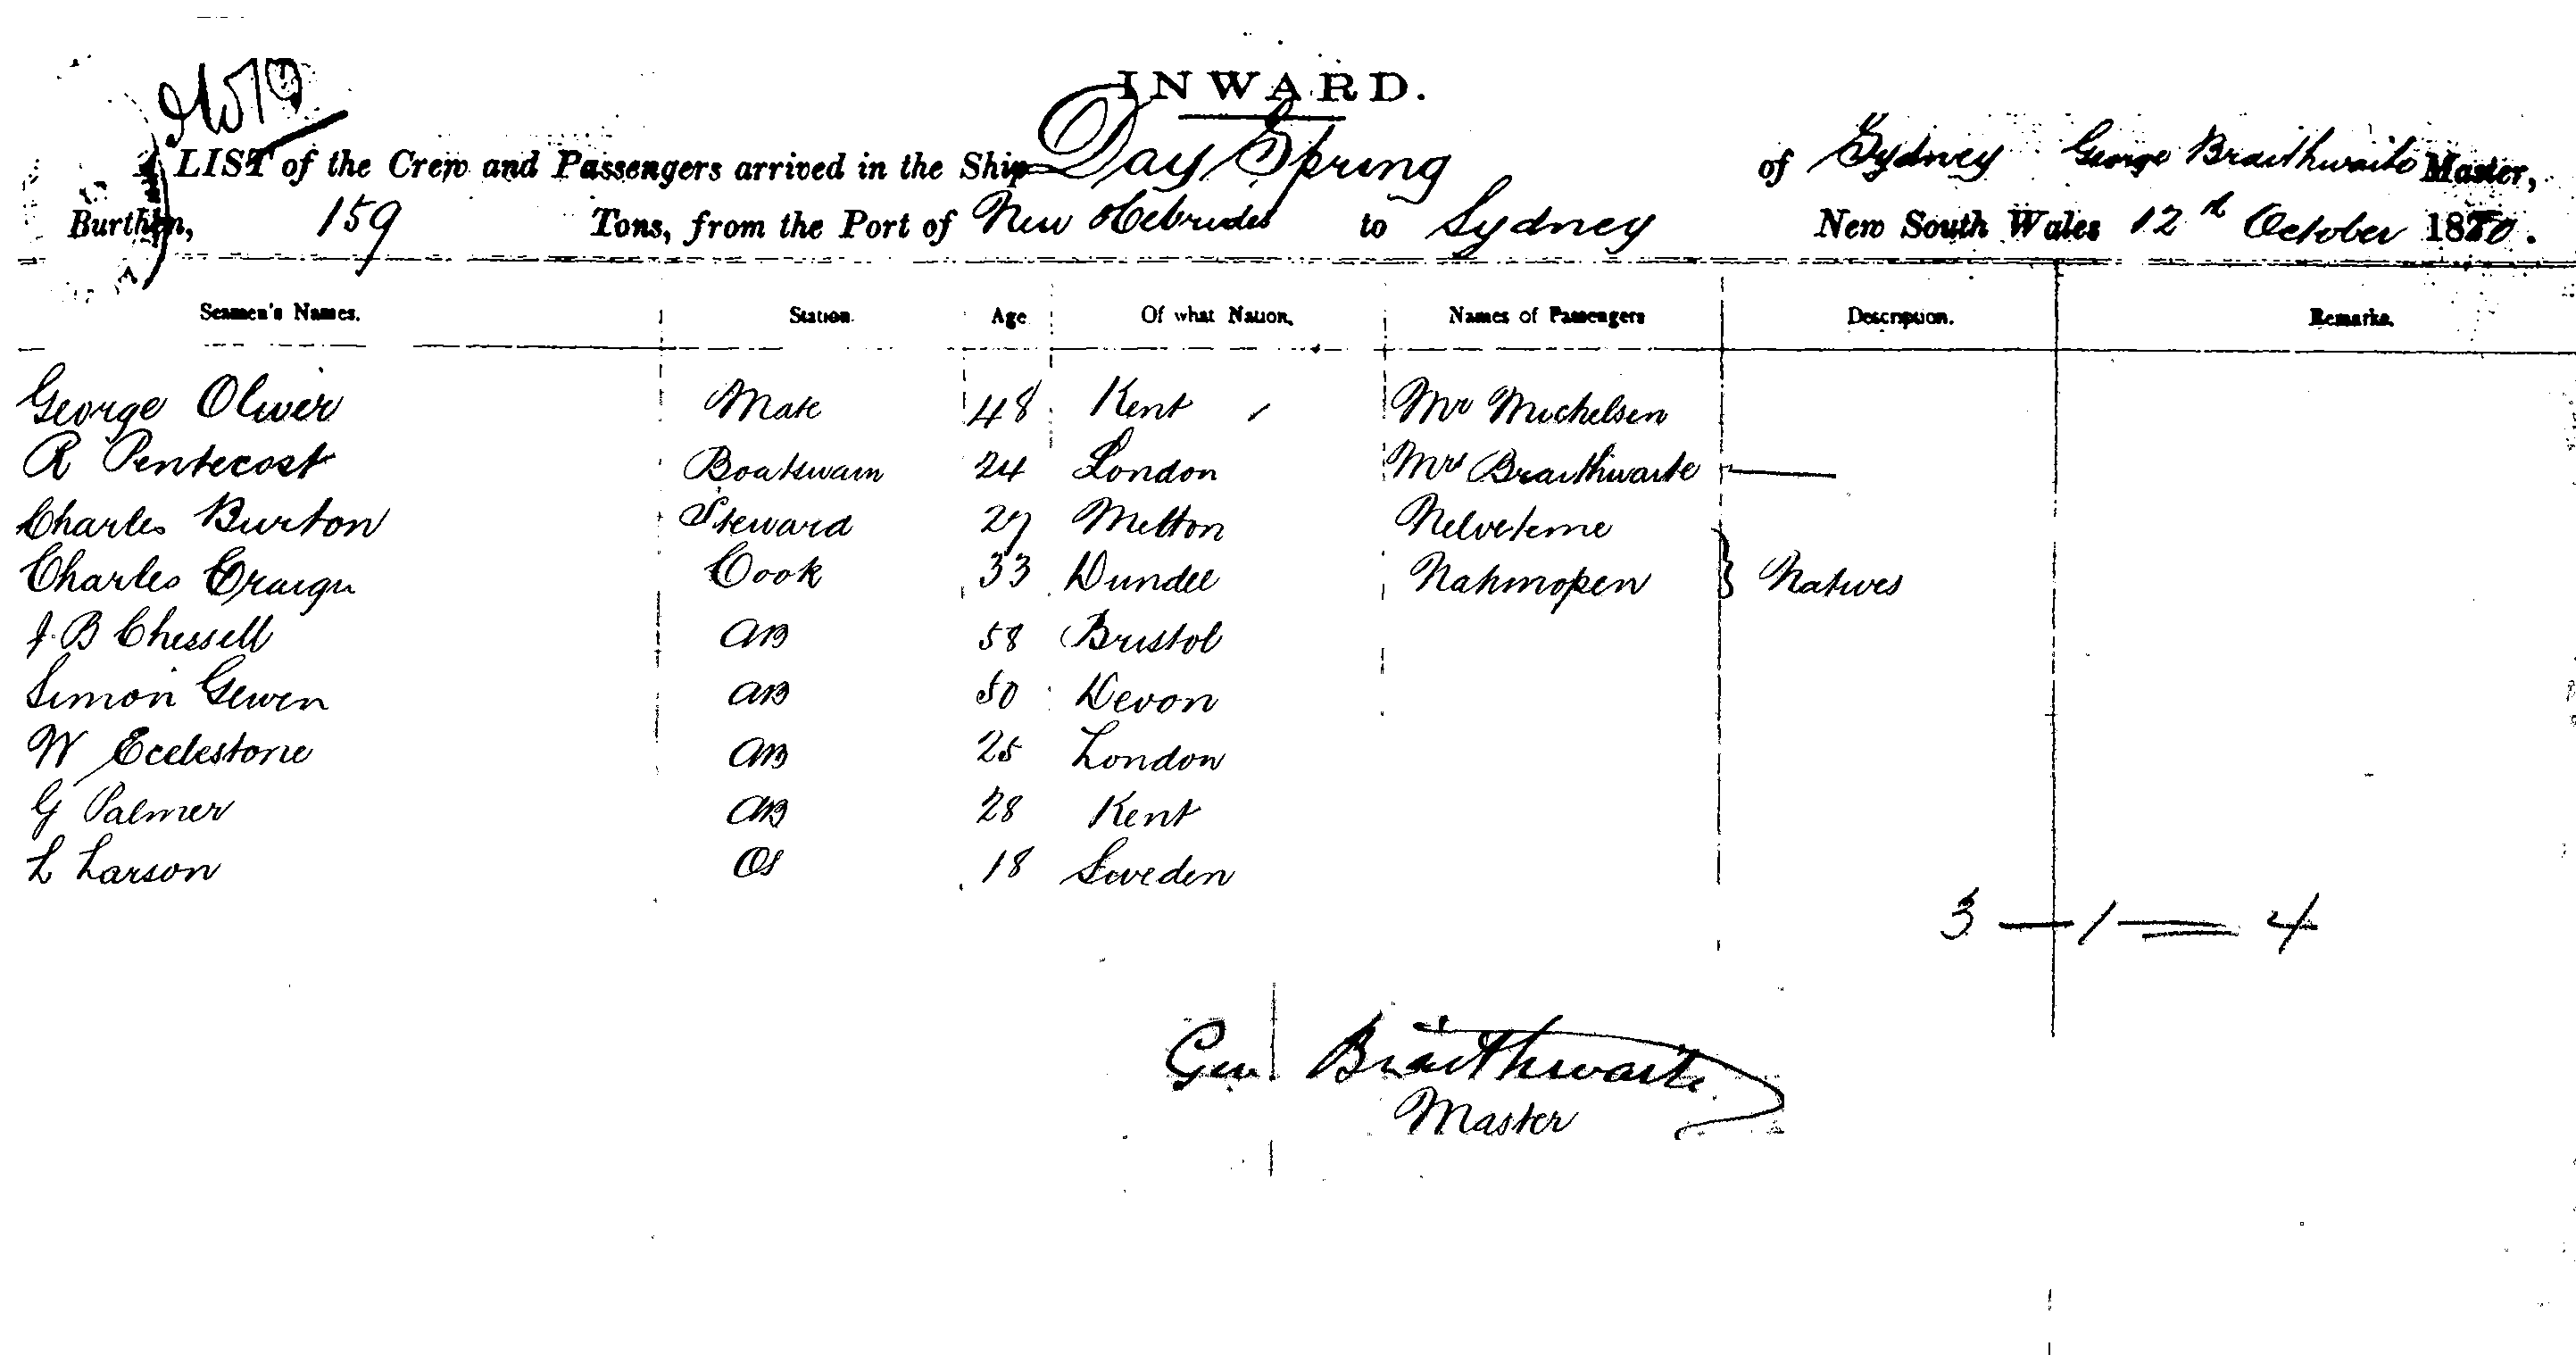 INWARD.
A LIST of the Crew and Passengers arrived in the Ship Day Spring of Sydney George Braithwaite Master,
Burthen, 159 Tons, from the Port of New Hebrides to Sydney New South Wales 12th October 1880.
Seamen's Names. Station. Age Of what Nation. Names of Passengers Description. Remarks.
George Oliver Mate 48 Kent Mr Michelsen
R Pentecost Boatswain 24 London Mrs Braithwaite
Charles Burton Steward 27 Melton Nelveteme
Charles Cook 33 Dundee Nahmopen } Natives
J. B Chessell AB 58 Bristol
Simon Gewen AB 50 Devon
W Ecclestone AB 25 London
G Palmer AB 28 Kent
L Larson OS 18 Sweden
3 — 1 — 4
Geo Braithwaite
Master